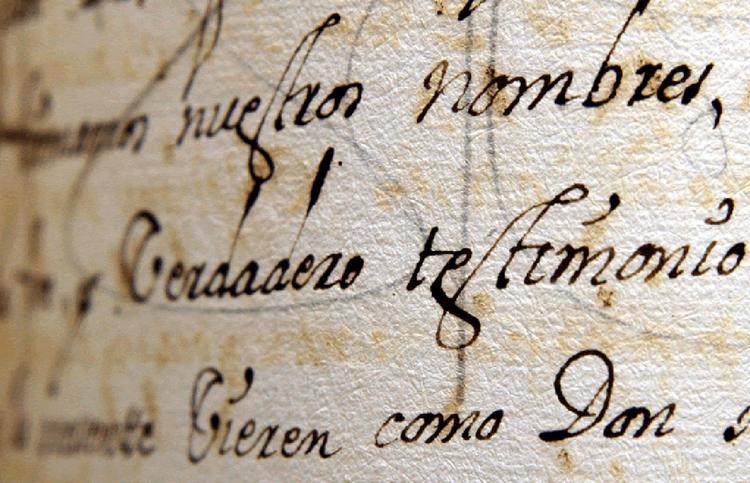 nuestros nombres,
y Verdadero testimonio
presente Vieren como Don